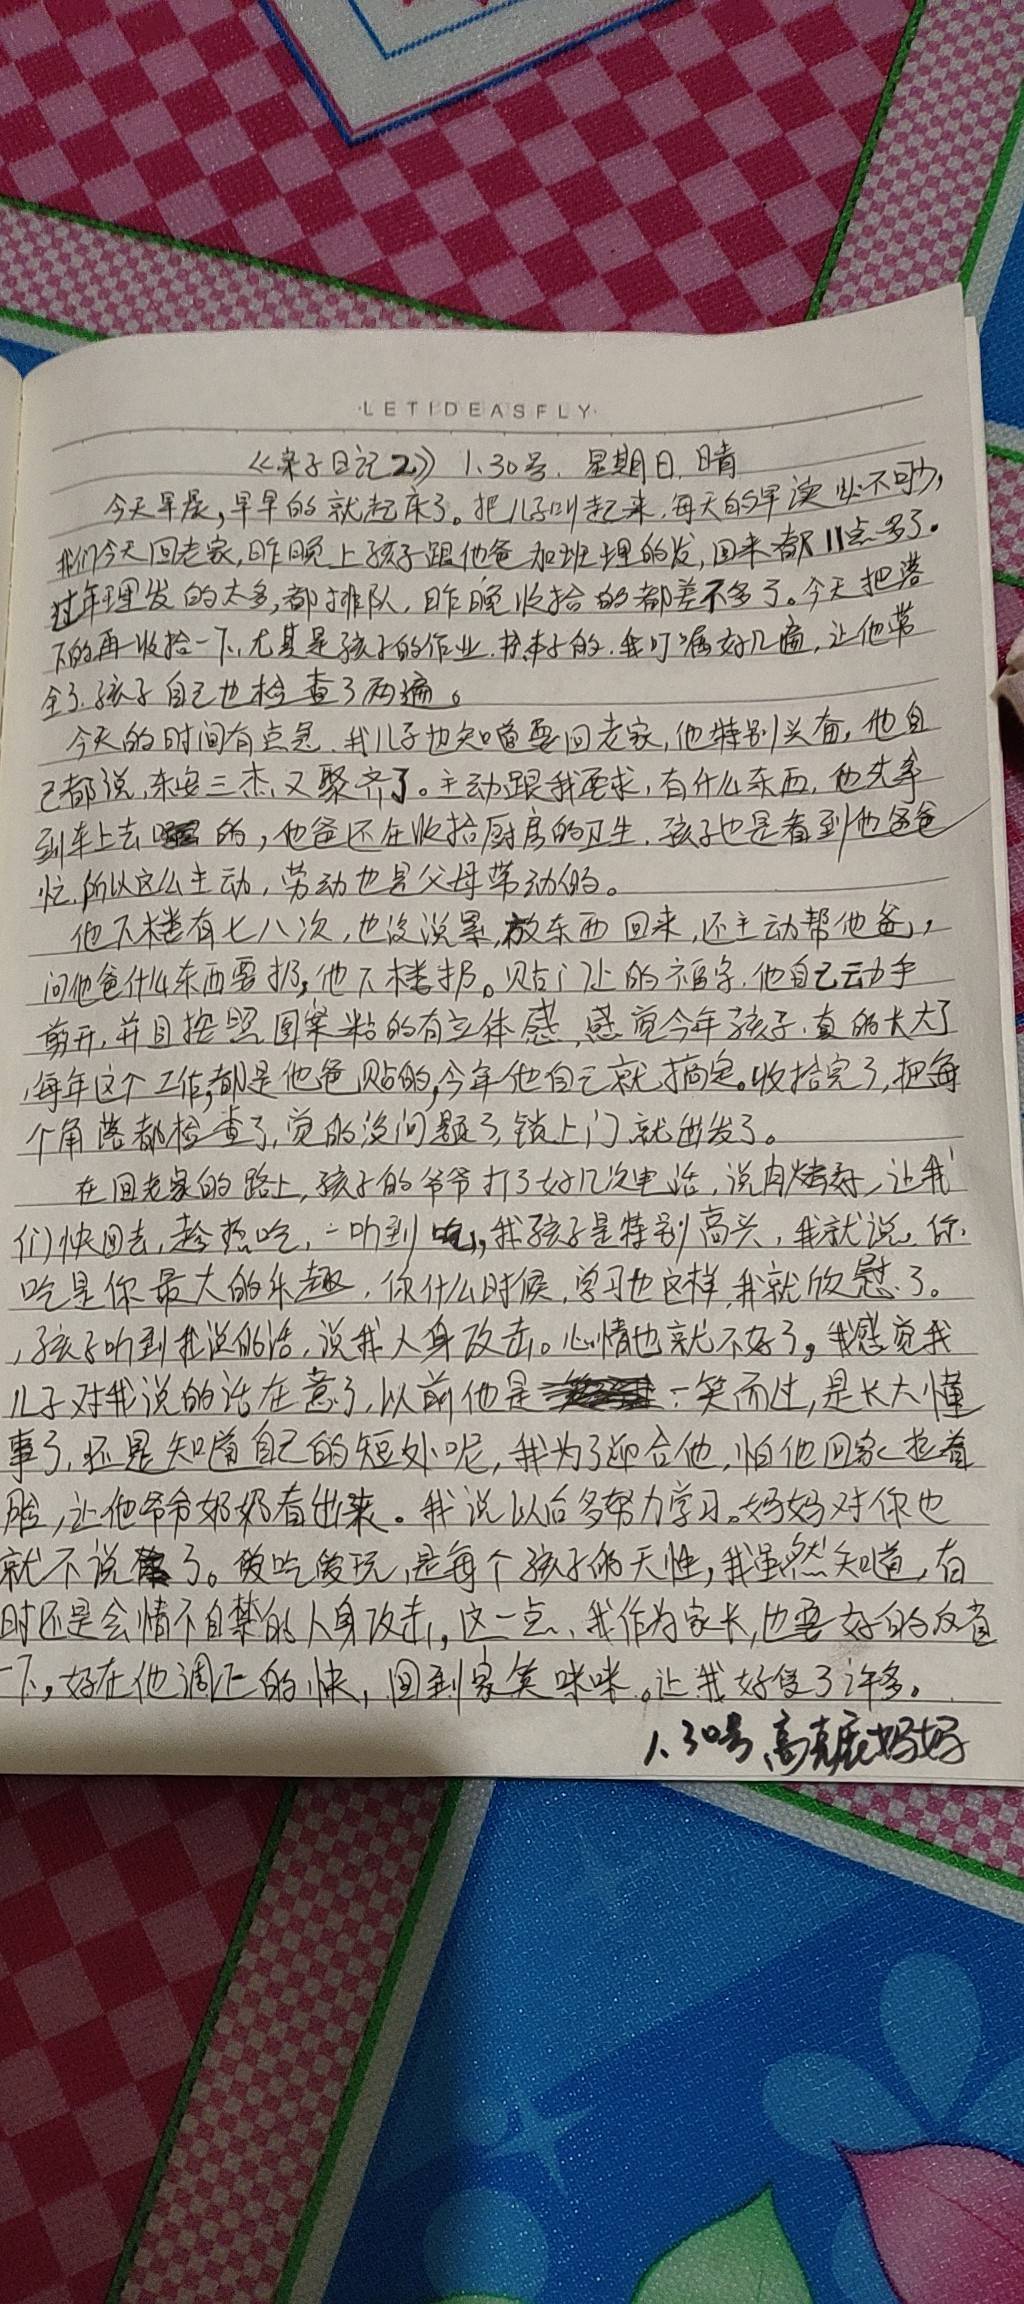 ·LETIDEASFLY·
《亲子日记2》 1.30号. 星期日. 晴
今天早晨,早早的就起床了。把儿子叫起来.每天的早读必不可少,
我们今天回老家,昨晚上孩子跟他爸加班理的发,回来都11点多了。
过年理发的太多,都排队,昨晚收拾的都差不多了。今天把落
下的再收拾一下,尤其是孩子的作业.书本子的.我叮嘱好几遍,让他带
全了.孩子自己也检查了两遍。
今天的时间有点急.我儿子也知道要回老家,他特别兴奋,他自
己都说,东安三杰,又聚齐了。主动跟我要求,有什么东西,他先拿
到车上去的,他爸还在收拾厨房的卫生.孩子也是看到他爸爸
忙.所以这么主动,劳动也是父母带动的。
他下楼有七八次,也没说累,放东西回来,还主动帮他爸,
问他爸什么东西要扔,他下楼扔。贴门上的福字.他自己动手
剪开,并且按照图案粘的有立体感,感觉今年孩子.真的长大了
,每年这个工作,都是他爸贴的,今年他自己就搞定。收拾完了,把每
个角落都检查了,觉的没问题了,锁上门就出发了。
在回老家的路上,孩子的爷爷打了好几次电话,说肉烤好,让我
们快回去,趁热吃,一听到吃,我孩子是特别高兴,我就说,你
吃是你最大的乐趣,你什么时候,学习也这样,我就欣慰了。
,孩子听到我说的话,说我人身攻击。心情也就不好了。我感觉我
儿子对我说的话在意了,以前他是一笑而过,是长大懂
事了,还是知道自己的短处呢,我为了迎合他,怕他回家拉着
脸,让他爷爷奶奶看出来。我说以后多努力学习。妈妈对你也
就不说了。爱吃爱玩,是每个孩子的天性,我虽然知道,有
时还是会情不自禁的人身攻击,这一点、我作为家长,也要好的反省
一下,好在他调正的快,回到家笑咪咪。让我好受了许多。
1.30号 高 妈妈